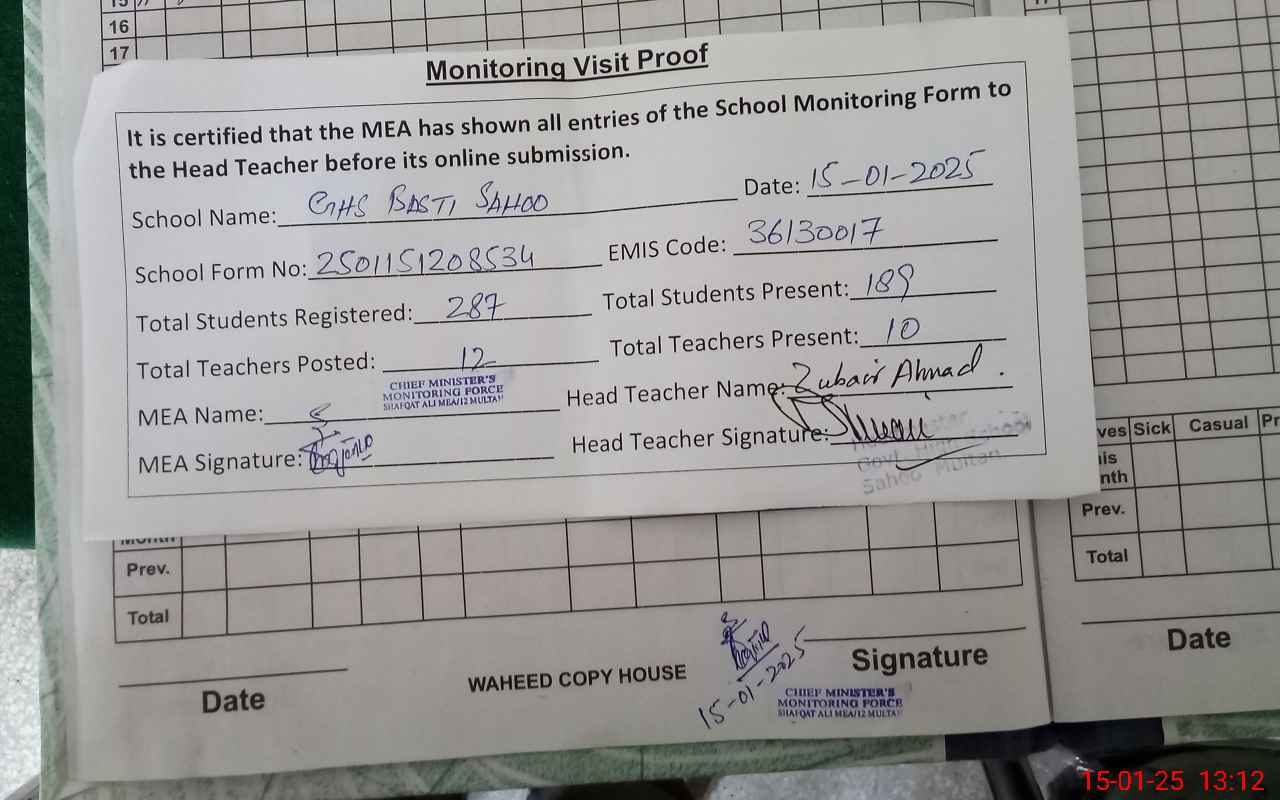 15
16
17
Monitoring Visit Proof
It is certified that the MEA has shown all entries of the School Monitoring Form to
the Head Teacher before its online submission.
School Name: GHS BASTI SAHOO Date: 15-01-2025
School Form No: 2501151208534 EMIS Code: 36130017
Total Students Registered: 287 Total Students Present: 189
Total Teachers Posted: 12 Total Teachers Present: 10
CHIEF MINISTER'S
MONITORING FORCE
SHAFQAT ALI MEA/12 MULTAN
MEA Name: Head Teacher Name: Zubair Ahmad.
MEA Signature: Head Teacher Signature:
Govt. High School
Sahoo Multan
Month
Prev.
Total
Date
WAHEED COPY HOUSE
15-01-2025
Signature
CHIEF MINISTER'S
MONITORING FORCE
SHAFQAT ALI MEA/12 MULTAN
Sick Casual
Prev.
Total
Date
15-01-25 13:12